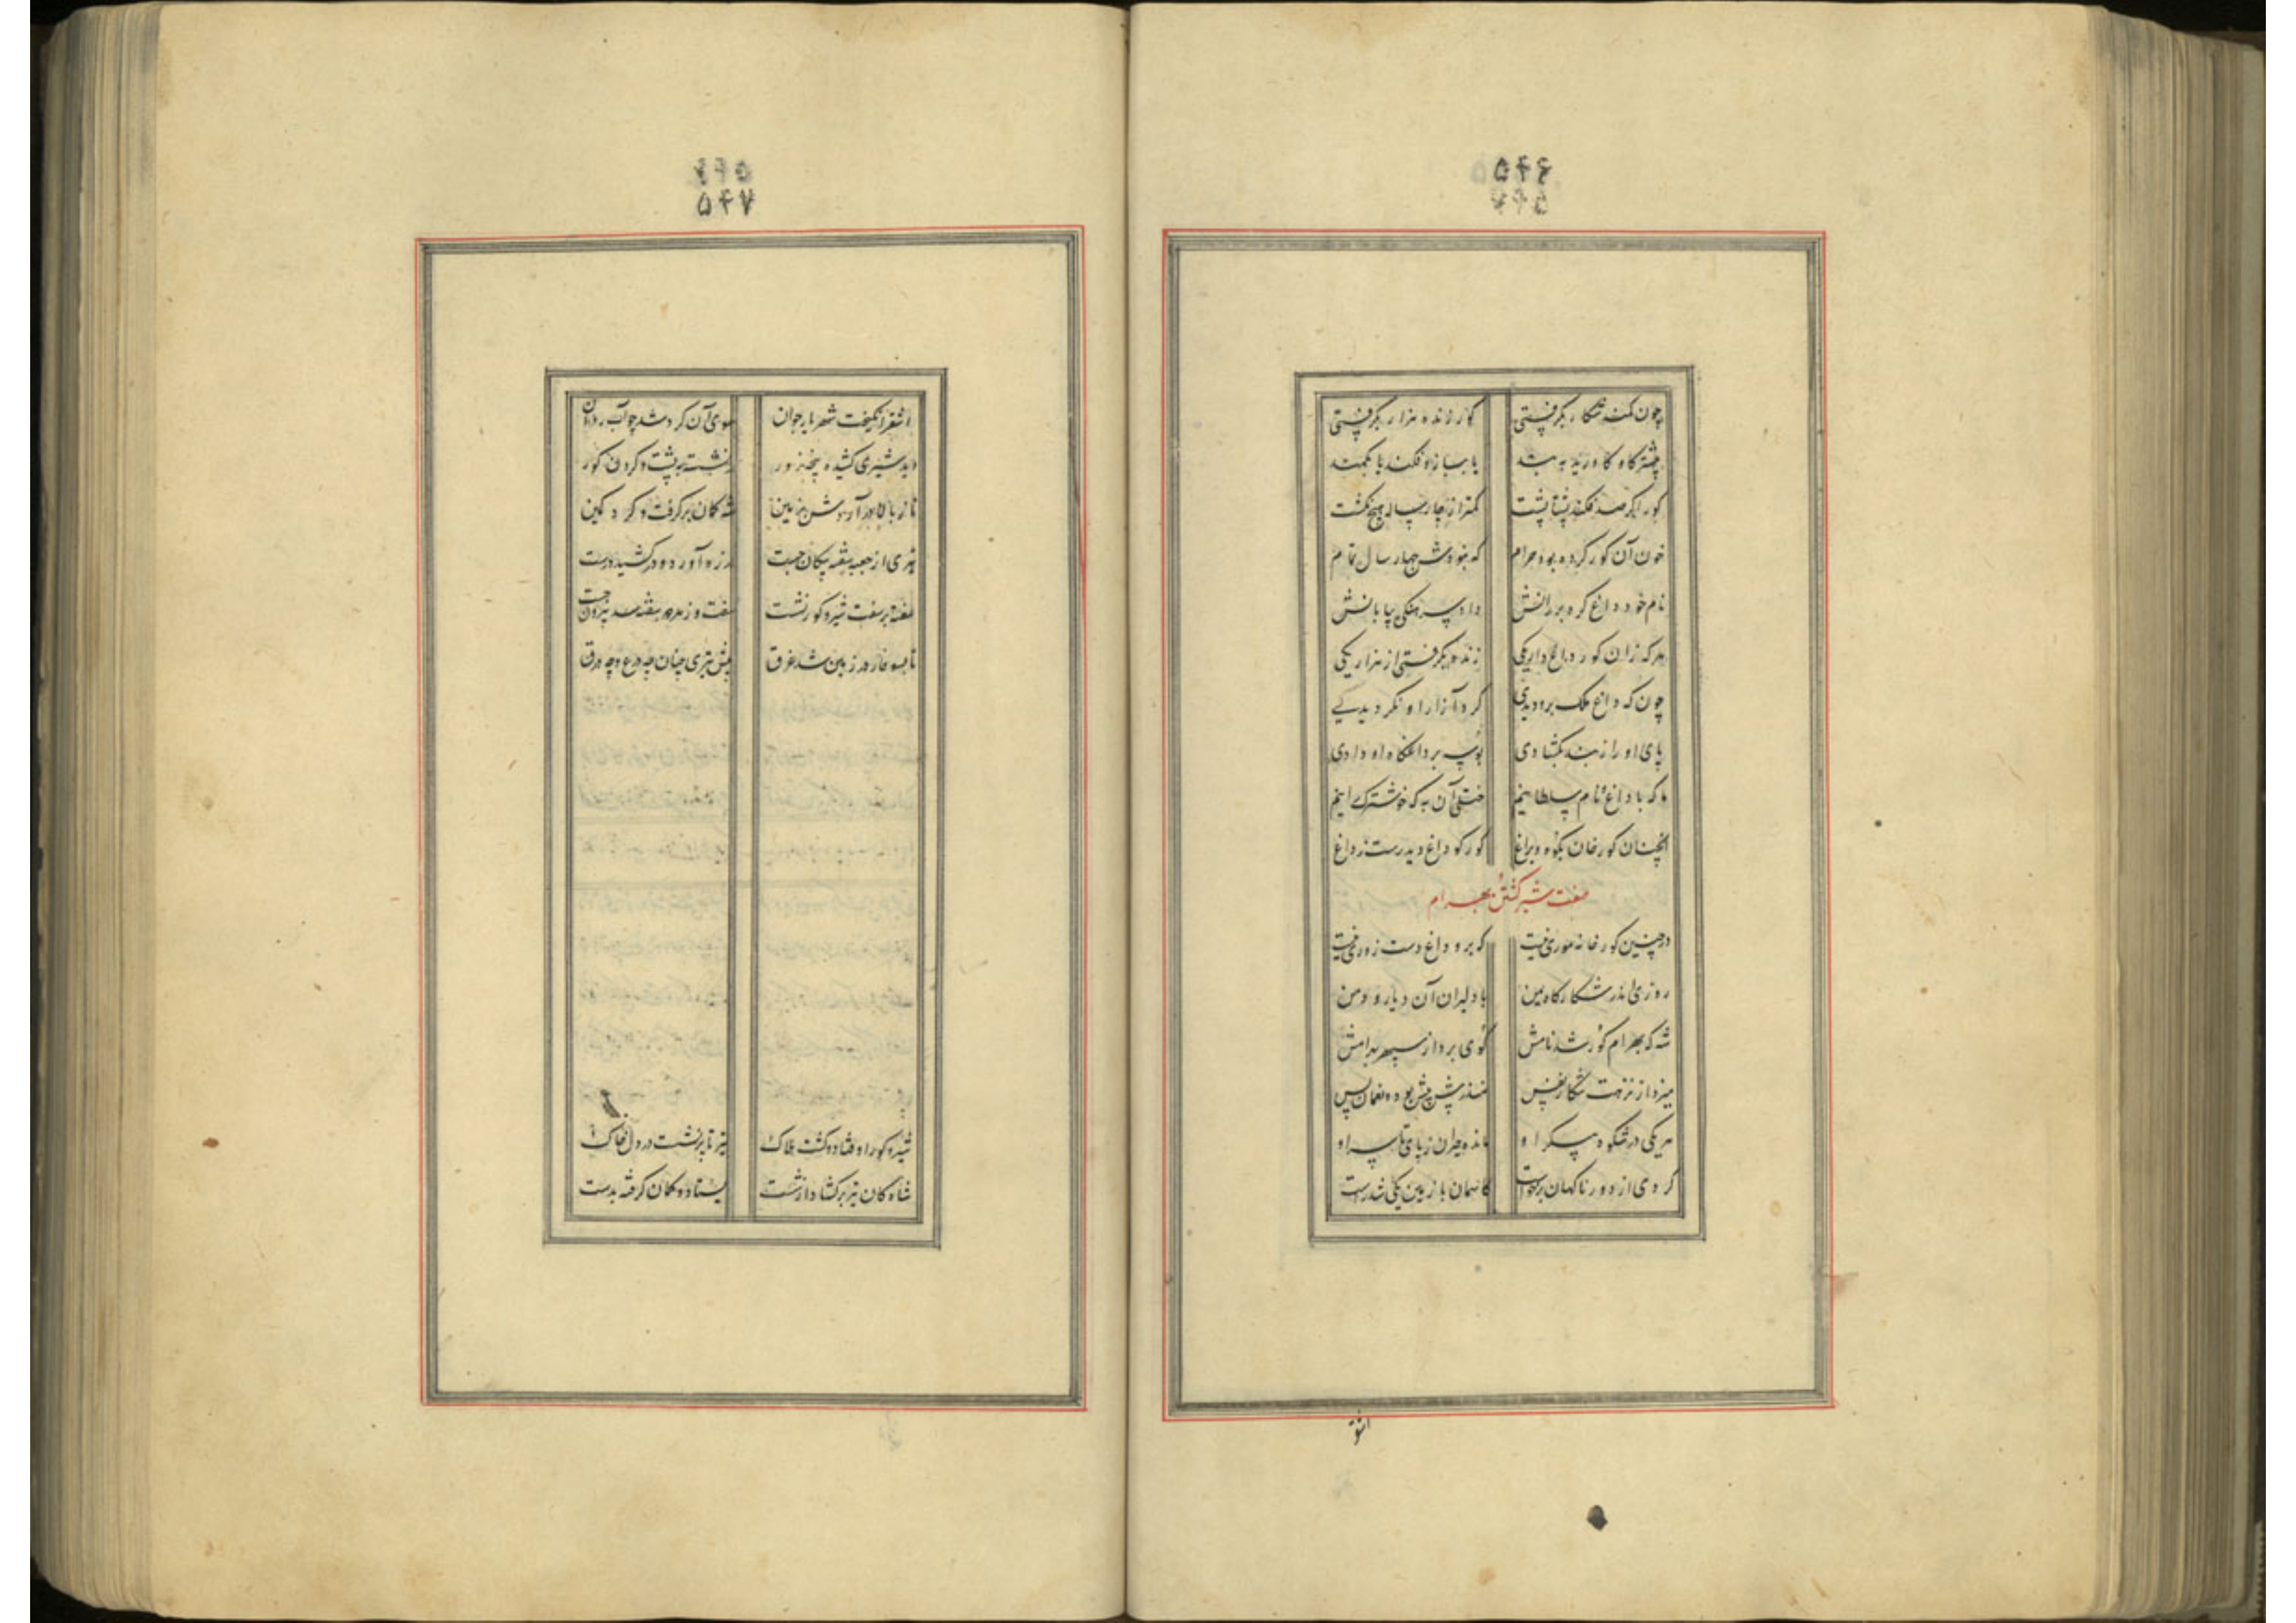 ۵۴۶
چون کمند شکار بگرفتی گور زنده هزار بگرفتی
بیشتر گاو کاوریده به بند یا ببازو فکند یا بکمند
گور اگر صد فکند پشتاپشت کمتر از چارساله هیچ نکشت
خون آن گور کرده بود حرام که نبودش چهار سال تمام
نام خود داغ کرد بر رانش داد سرهنگی بیابانش
هر که زان گور داغ دار یکی زنده بگرفتی از هزار یکی
چون که داغ ملک برو دیدی گرد آزار او نگردیدی
پای او را ز بند بگشادی بوسه بر داغگاه او دادی
ما که با داغ نام سلطانیم ختلی آن به که خوشترک رانیم
آنچنان گورخان بکوه و براغ گور کو داغ دید رست ز داغ
صفت شیر کشتن بهرام
در چنین گورخانه موری نیست که برو داغ دست زوری نیست
روزی اندر شکارگاه یمن با دلیران آن دیار و دمن
شه که بهرام گور شد نامش گوی برد از سپهر بهرامش
میزد از نزهت شکار نفس منذرش پیش بود و نعمان پس
هر یکی در شکوه پیکر او مانده حیران ز پای تا سر او
گردی از دور ناگهان برخواست کاسمان با زمین یکی شد راست
اشقر
۵۴۷
اشقر انگیخت شهریار جوان سوی آن گرد شد چو آب روان
دید شیری کشیده پنجه زور در نشسته به پشت و گردن گور
تا ز بالا در آردش بزمین شه کمان برگرفت و کرد کمین
تیری از جعبه سفته پیکان جست در زه آورد و درکشید درست
سفته بر سفت شیر و گور نشست سفت و ز هر دو سفته بیرون جست
تا بسوفار در زمین شد غرق پیش تیری چنان چه درع و چه درق
شیر و گور اوفتاد و گشت هلاک تیر تا پر نشست در دل خاک
شاه کان تیر برگشاد از شست ایستاد و کمان گرفته بدست